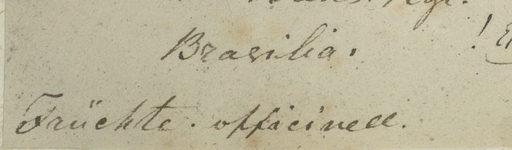 Brasilia.
!
Früchte. officinell.